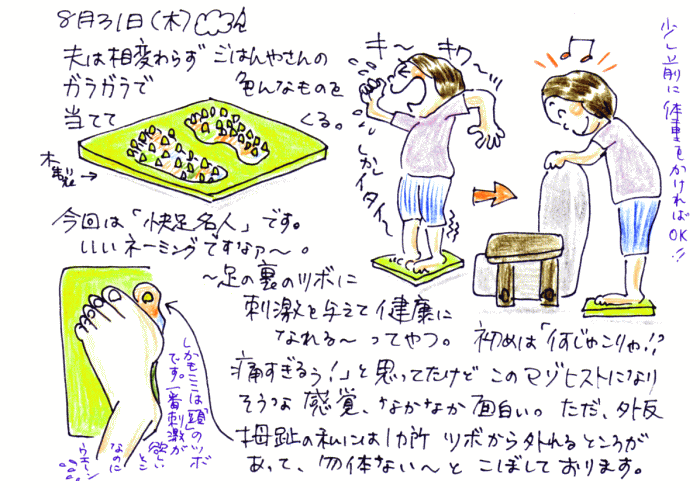 8月31日(木)
夫は相変わらず ごはんやさんの
ガラガラで 色んなものを
当てて くる。
木製→
キ〜 キワ〜ッ
しかしイタイ〜
少し前に体重をかければOK!!
今回は「快足名人」です。
いいネーミングですなァ〜。
〜足の裏のツボに
刺激を与えて健康に
なれる〜ってやつ。
初めは「何じゃこりゃ!?
痛すぎるぅ!」と思ってたけど このマゾヒストになり
そうな 感覚、なかなか面白い。ただ、外反
拇趾の私には1カ所 ツボから外れるところが
あって、勿体ない〜と こぼしております。
しかもここは「頭」のツボ
です。一番刺激が
欲しいとこ
なのに
ウエーン